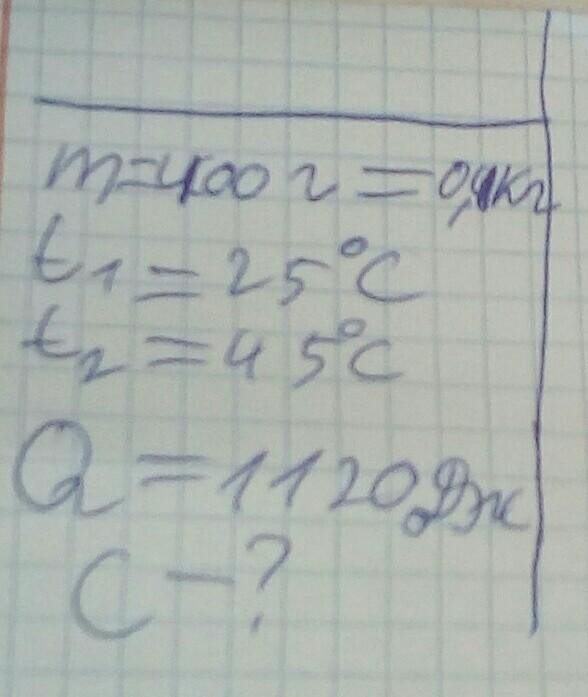 m=400 г = 0,4кг
t₁ = 25°C
t₂ = 45°C
Q = 1120 Дж
C - ?